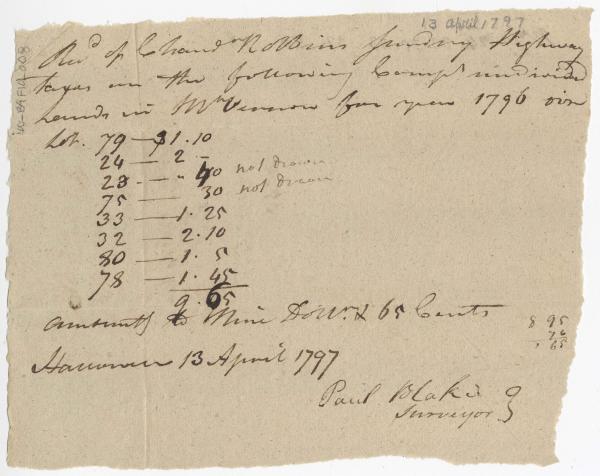 13 april 1797
100-B9F14-008
Recd of Chandr Robbins sundry Highway
taxes on the following Compy undivided
Lands in Mt Vernon for year 1796 viz
Lot. 79 — $1.10
24 — 2 –
23 — " 40 not drawn
75 — 30 not drawn
33 — 1.25
32 — 2.10
80 — 1.5
78 — 1.45
9.65
amounts to Nine Dollrs & 65 Cents
8 95
70
9 65
13 April 1797
Paul Blake
Surveyor